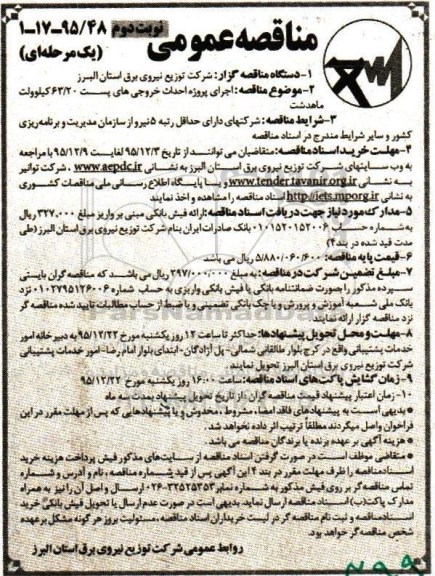 مناقصه عمومی
نوبت دوم ۴۸/ ۹۵-۱۷-۱
(یک مرحله‌ای)
۱-دستگاه مناقصه گزار: شرکت توزیع نیروی برق استان البرز
۲-موضوع مناقصه: اجرای پروژه احداث خروجی های پست ۶۳/۲۰ کیلوولت
ماهدشت
۳-شرایط مناقصه: شرکتهای دارای حداقل رتبه ۵ نیرو از سازمان مدیریت و برنامه‌ریزی
کشور و سایر شرایط مندرج در اسناد مناقصه
۴-مهلت خرید اسناد مناقصه: متقاضیان می توانند از تاریخ ۹۵/۱۲/۳ لغایت ۹۵/۱۲/۹ با مراجعه
به وب سایتهای شرکت توزیع نیروی برق استان البرز به نشانی www.aepdc.ir ، شرکت توانیر
به نشانی www.tender.tavanir.org.ir و یا پایگاه اطلاع رسانی ملی مناقصات کشوری
به نشانی http://iets.mporg.ir اسناد مناقصه را مشاهده و اخذ نمایند
۵-مدارک مورد نیاز جهت دریافت اسناد مناقصه: ارائه فیش بانکی مبنی بر واریز مبلغ ۳۲۷,۰۰۰ ریال
به شماره حساب ۰۱۰۱۵۲۰۱۵۲۰۰۶ بانک صادرات ایران بنام شرکت توزیع نیروی برق استان البرز (طی
مدت قید شده در بند ۴)
۶-قیمت پایه مناقصه: ۵/۸۸۰/۰۶۰/۶۰۰ ریال می باشد
۷-مبلغ تضمین شرکت در مناقصه: به مبلغ ۲۹۷/۰۰۰/۰۰۰ ریال می باشد که مناقصه گران بایستی
سپرده مذکور را بصورت ضمانتنامه بانکی یا فیش بانکی واریزی به حساب شماره ۰۱۰۲۷۹۵۱۲۶۰۰۶ نزد
بانک ملی شعبه آموزش و پرورش و یا چک بانکی تضمینی و یا ضبط از حساب مطالبات تایید شده مناقصه گر
نزد مناقصه گزار ارائه نمایند
۸-مهلت و محل تحویل پیشنهادها: حداکثر تا ساعت ۱۲ روز یکشنبه مورخ ۹۵/۱۲/۲۲ به دبیرخانه امور
خدمات پشتیبانی واقع در کرج بلوار طالقانی شمالی- پل آزادگان -ابتدای بلوار امام رضا-امور خدمات پشتیبانی
شرکت توزیع نیروی برق استان البرز تحویل نمایند.
۹-زمان گشایش پاکت‌های اسناد مناقصه: ساعت ۱۶:۰۰ روز یکشنبه مورخ ۹۵/۱۲/۲۲
۱۰- زمان اعتبار پیشنهاد قیمت مناقصه گران: از تاریخ تحویل پیشنهاد بمدت سه ماه
* بدیهی است به پیشنهادهای فاقد امضا، مشروط، مخدوش و یا پیشنهادهایی که پس از مهلت مقرر در این
فراخوان واصل میگردند مطلقاً ترتیب اثر داده نخواهد شد.
* هزینه آگهی بر عهده برنده یا برندگان مناقصه می باشد.
* متقاضی موظف است در صورت گرفتن اسناد مناقصه از سایت‌های مذکور فیش پرداخت هزینه خرید
اسناد مناقصه را ظرف مهلت مقرر در بند ۴ این آگهی پس از قید شماره مناقصه، نام و آدرس و شماره
تماس مناقصه گر بر روی فیش مذکور به شماره نمابر ۳۲۵۲۵۳۵۳-۰۲۶ ارسال و اصل آن را نیز به همراه
مدارک پاکت(ب) اسناد مناقصه ارسال نماید. بدیهی است در صورت عدم ارسال یا تحویل فیش بانکی خرید
اسناد مناقصه و ثبت نام مناقصه گر در لیست خریداران اسناد مناقصه، مسئولیت بروز هر گونه مشکل بر عهده
شخص مناقصه گر خواهد بود.
روابط عمومی شرکت توزیع نیروی برق استان البرز